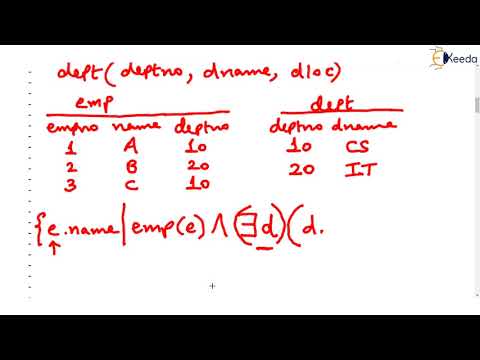 Keeda
dept(deptno, dname, dloc)
emp dept
empno name deptno deptno dname
1 A 10 10 CS
2 B 20 20 I.T
3 C 10
{e.name | emp(e) ∧ (∃d)(d.